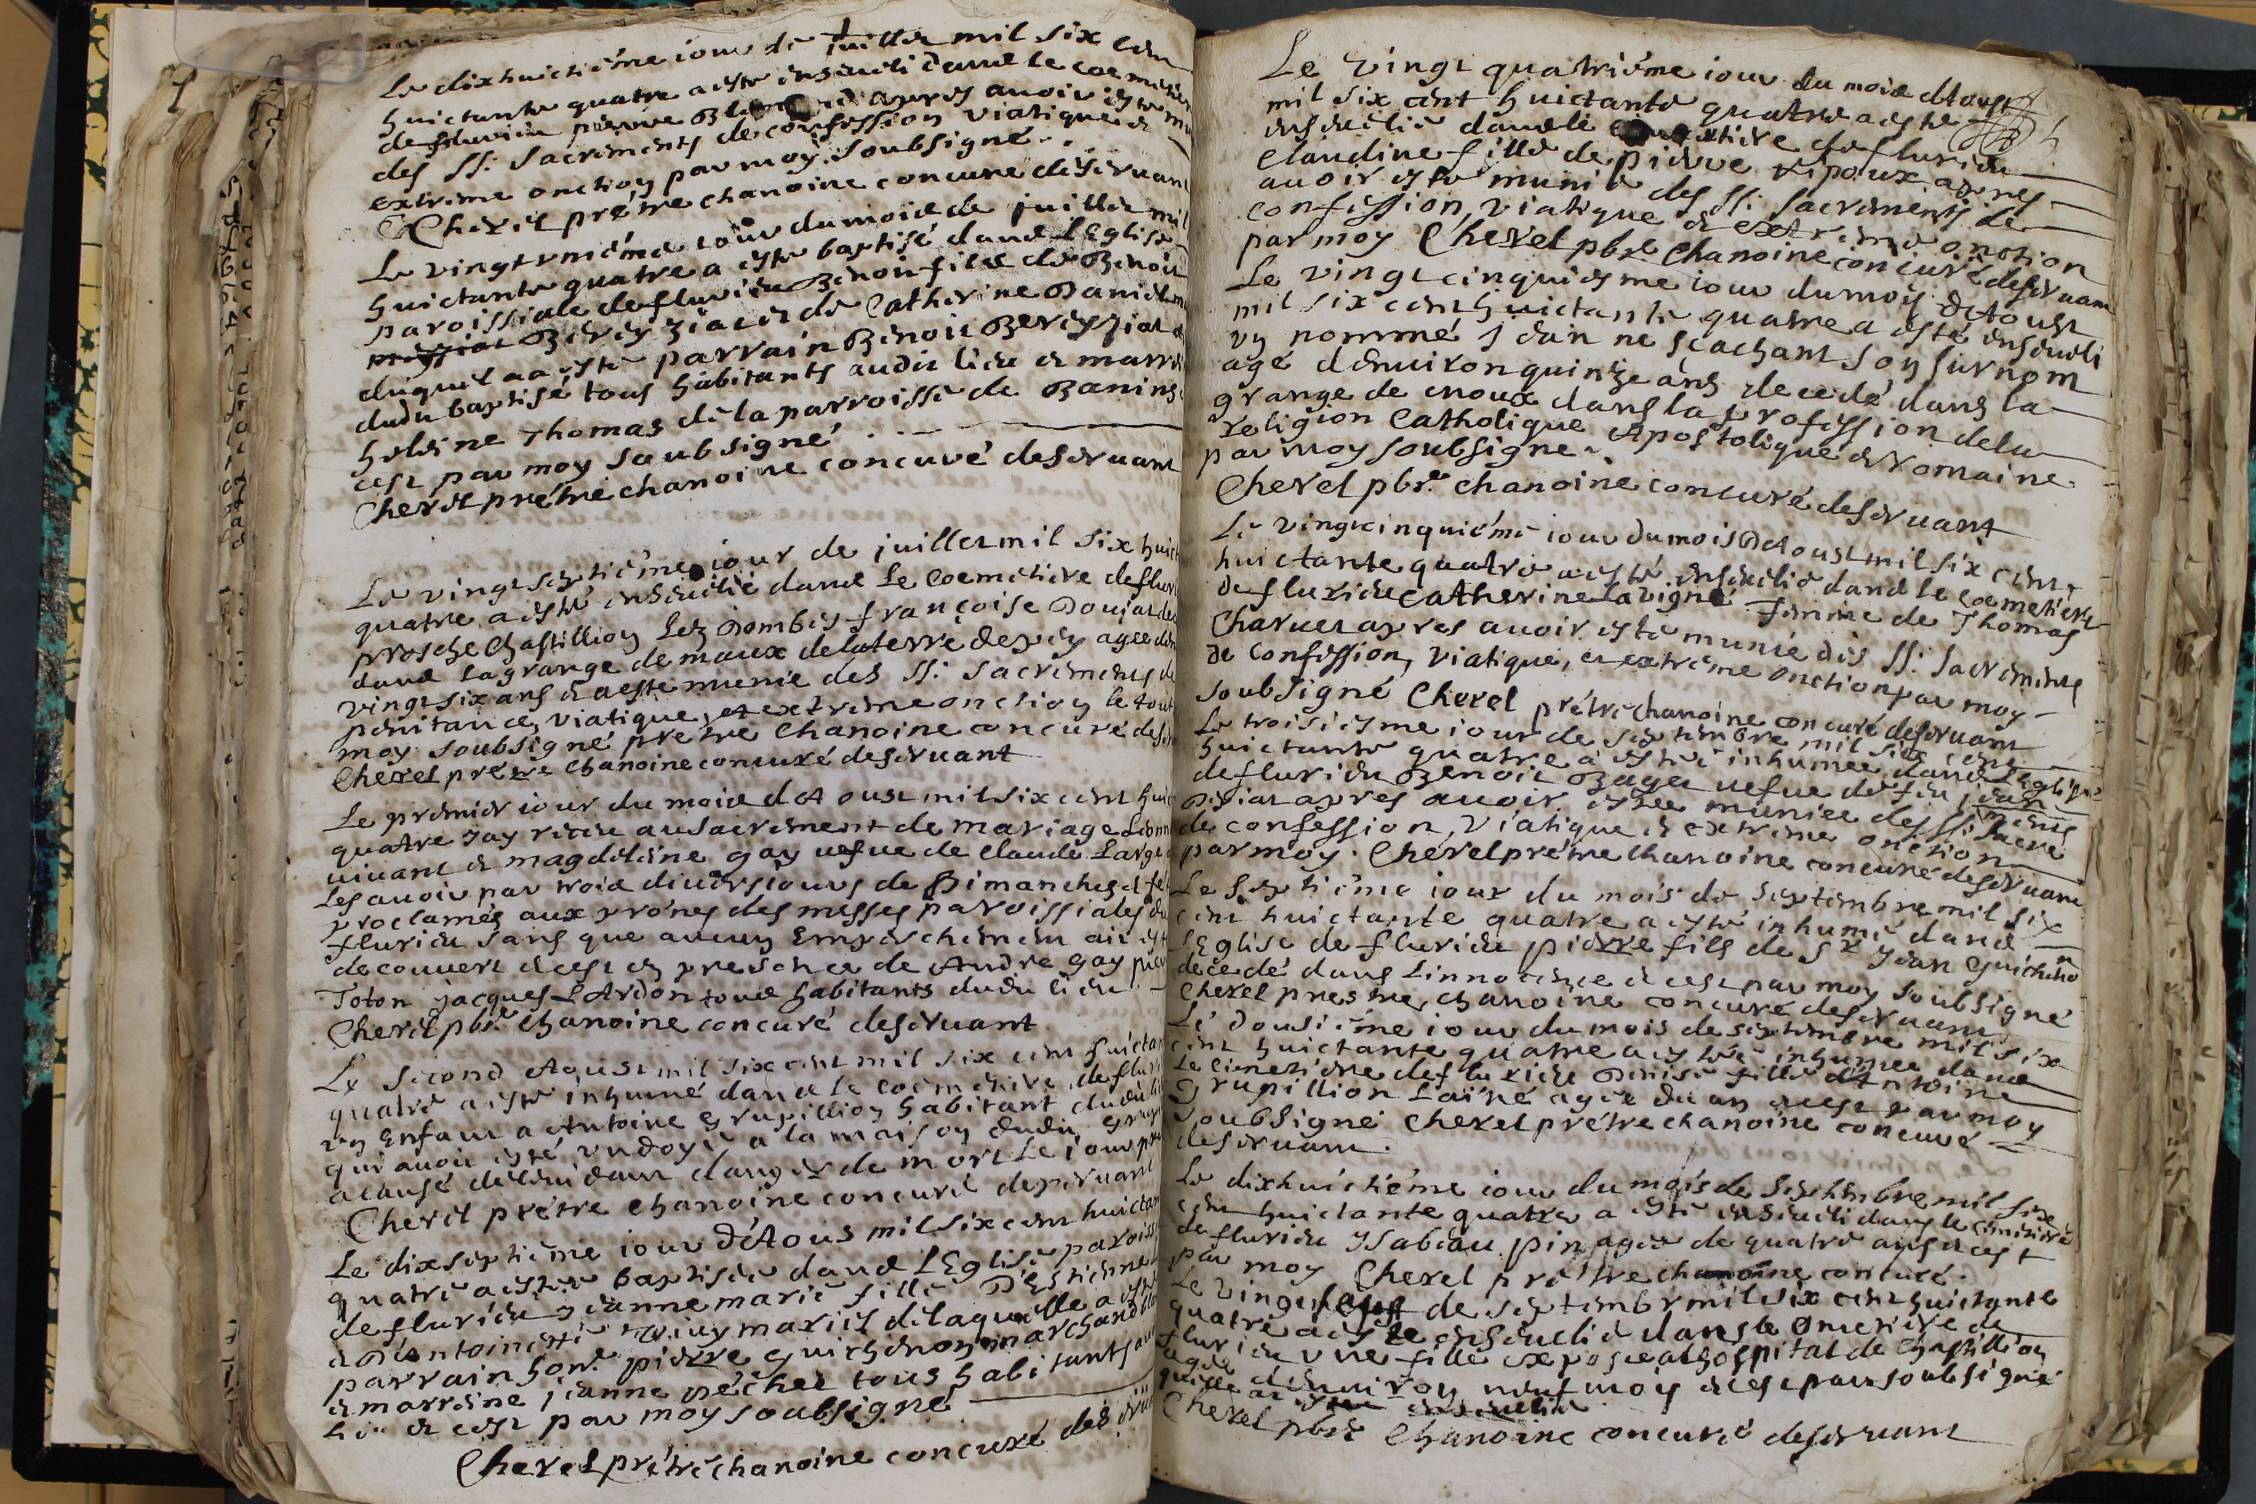 Le dixhuictiéme iour de juillet mil six cent
huictante quatre a esté enseueli dans le coemetiere
de flurieu pierre apres auoir esté muni
des SS. Sacrements de confession viatique et
extreme onction par moy soubsigné.
Cherel prétre chanoine concuré deseruant
Le vingt vniéme iour du mois de juillet mil
huictante quatre a esté baptisé dans l'Eglise
paroissiale de flurieu Benoit fils de Benoit
Bereyziat et de Catherine Daniel
duquel a esté parrain Benoit Bereyziat
dudit baptisé tous habitants audit lieu et marraine
heleine Thomas de la parroisse de Banins
cest par moy soubsigné
Cherel prétre chanoine concuré deseruant
Le vingt septiéme iour de juillet mil six huict
quatre a esté enseuelie dans le Coemetiere de fluri
prosche Chastillion lez Dombes françoise Doujat de
dans la grange de maux de la terre depey agee den
vingt six ans et a esté munie des SS. Sacrements de
penitance, viatique, et extreme onction le tout
moy soubsigné prétre Chanoine concuré des
Cherel prétre chanoine concuré deseruant
Le premier iour du mois d'Aoust mil six cent huic
quatre jay receu au sacrement de mariage
viuant et magdeleine gay vefue de Claude Large
les auoir par trois diuers iours de Dimanches et fé
proclamés aux prónes des messes paroissiales du
flurieu sans que aucun Empeschement ait est
decouuert et cest en presence de André gay pier
Toton jacques LArdon tous habitants dudit lieu
Cherel pbre chanoine concuré deseruant
Le second Aoust mil six cent mil six cent huictan
quatre a esté inhumé dans le Coemetiere de fluri
vn Enfant a Antoine Grupillion habitant dudit li
qui auoit esté vndoyé a la maison dudit Grup
a cause de leuident danger de mort le iour pre
Cherel prétre chanoine concuré deseruant
Le dixseptiéme iour d'Aous mil six cent huictan
quatre a estée baptisée dans l'Eglise paroiss
de flurieu jeanne marie fille D'Estienne
et D'Antoinette mariés de laquelle a esté
parrain honr. pierre Guichenon marchand
et marreine jeanne péchet tous habitants au
lieu et cest par moy soubsigné
Cherel prétre chanoine concuré deseruant
Le vingt quatriéme iour du mois d'Aoust
mil six cent huictante quatre a esté
enseuelie dans le de flurieu
Claudine fille de pierre ripoux apres
auoir esté munie des SS. Sacrements de
confession, viatique et extreme onction
par moy Cherel pbre Chanoine concuré deseruant
Le vingt cinquiesme iour du moys d'Aoust
mil six cent huictante quatre a esté enseueli
vn nommé jean ne sçachant son surnom
agé denuiron quinze ans decedé dans la
grange de enoux dans la profession de la
religion Catholique Apostolique et romaine
par moy soubsigné.
Cherel pbre chanoine concuré deseruant
Le vingtcinquiéme iour du mois d'Aoust mil six cent
huictante quatre a esté enseuelie dans le coemetiere
de flurieu Catherine Lauigne femme de Thomas
Charuet apres auoir esté munie des SS. Sacrements
de Confession, viatique, et extreme onction par moy
soubsigné Cherel prétre chanoine concuré deseruant
Le troisiesme iour de septembre mil six cent
huictante quatre a estée inhumée dans l'Eglise
de flurieu Benoite Bages vefue de feu jean
apres auoir estée muniee des SS. Sacrements
de confession, viatique et extreme onction
par moy. Cherel prétre chanoine concuré deseruant
Le septiéme iour du mois de septembre mil six
cent huictante quatre a esté inhumé dans
l'Eglise de flurieu pierre fils de Sr jean Guichenon
decedé dans l'innocence et cest par moy soubsigné
Cherel prestre, chanoine concuré deseruant
Le Dousiéme iour du mois de septembre mil six
cent huictante quatre a estée inhumée dans
le cimetiere de fluxieu Denise fille d'Antoine
Grupillion L'ainé agée du an et cest par moy
soubsigné Cherel prétre chanoine concuré
deseruant.
Le dixhuictiéme iour du mois de septembre mil six
cent huictante quatre a esté enseueli dans le cimitiere
de flurieu ysabeau pin agée de quatre ans et cest
par moy Cherel prétre chanoine concuré.
Le vingt de septembre mil six cent huictante
quatre a esté enseuelie dans le Cmetiere de
flurieu vne fille exposée a l'hospital de Chastillion
agée denuiron neuf moys et cest par soubsigné
Cherel pbre Chanoine concuré deseruant